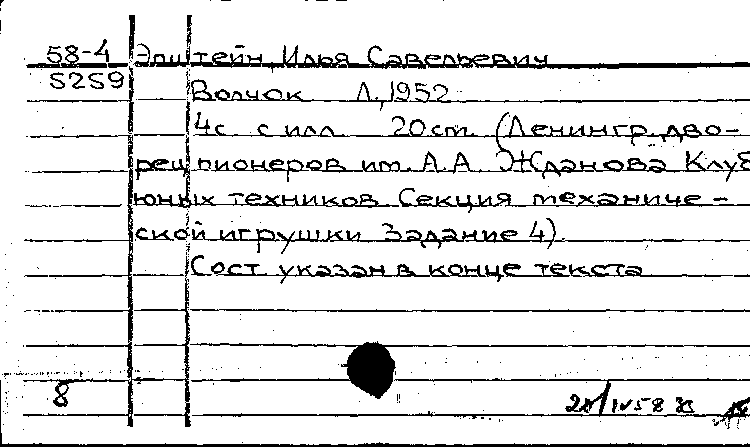 58-4 Эпштейн, Илья Савельевич
5259
Волчок Л., 1952
4с. с илл. 20 cm. (Ленингр. дво-
рец пионеров им. А.А. Жданова Клуб
юных техников Секция механиче-
ской игрушки Задание 4).
Сост. указан в конце текста
8